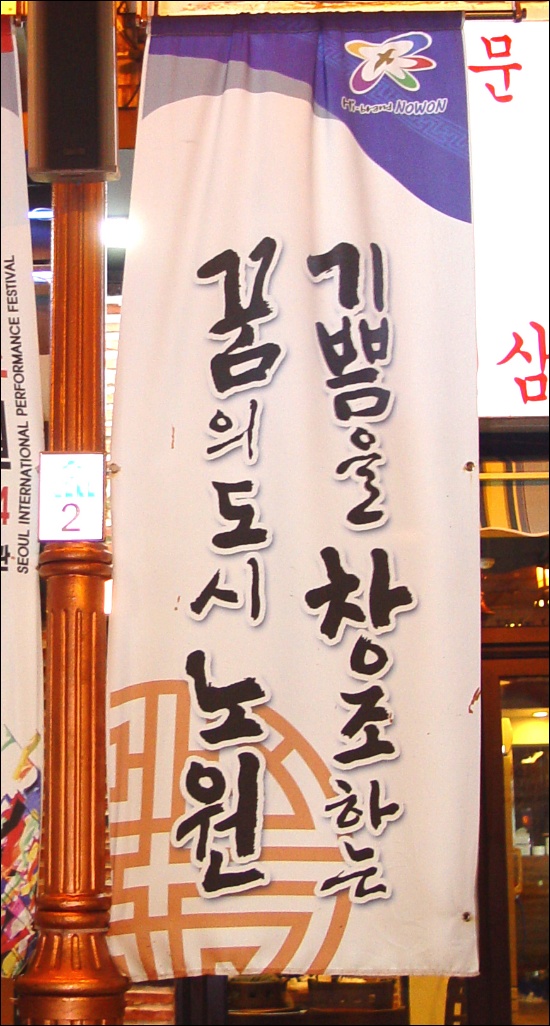 기쁨을 창조하는
꿈의 도시 노원
Hi-trend NOWON
문
삼
2
SEOUL INTERNATIONAL PERFORMANCE FESTIVAL